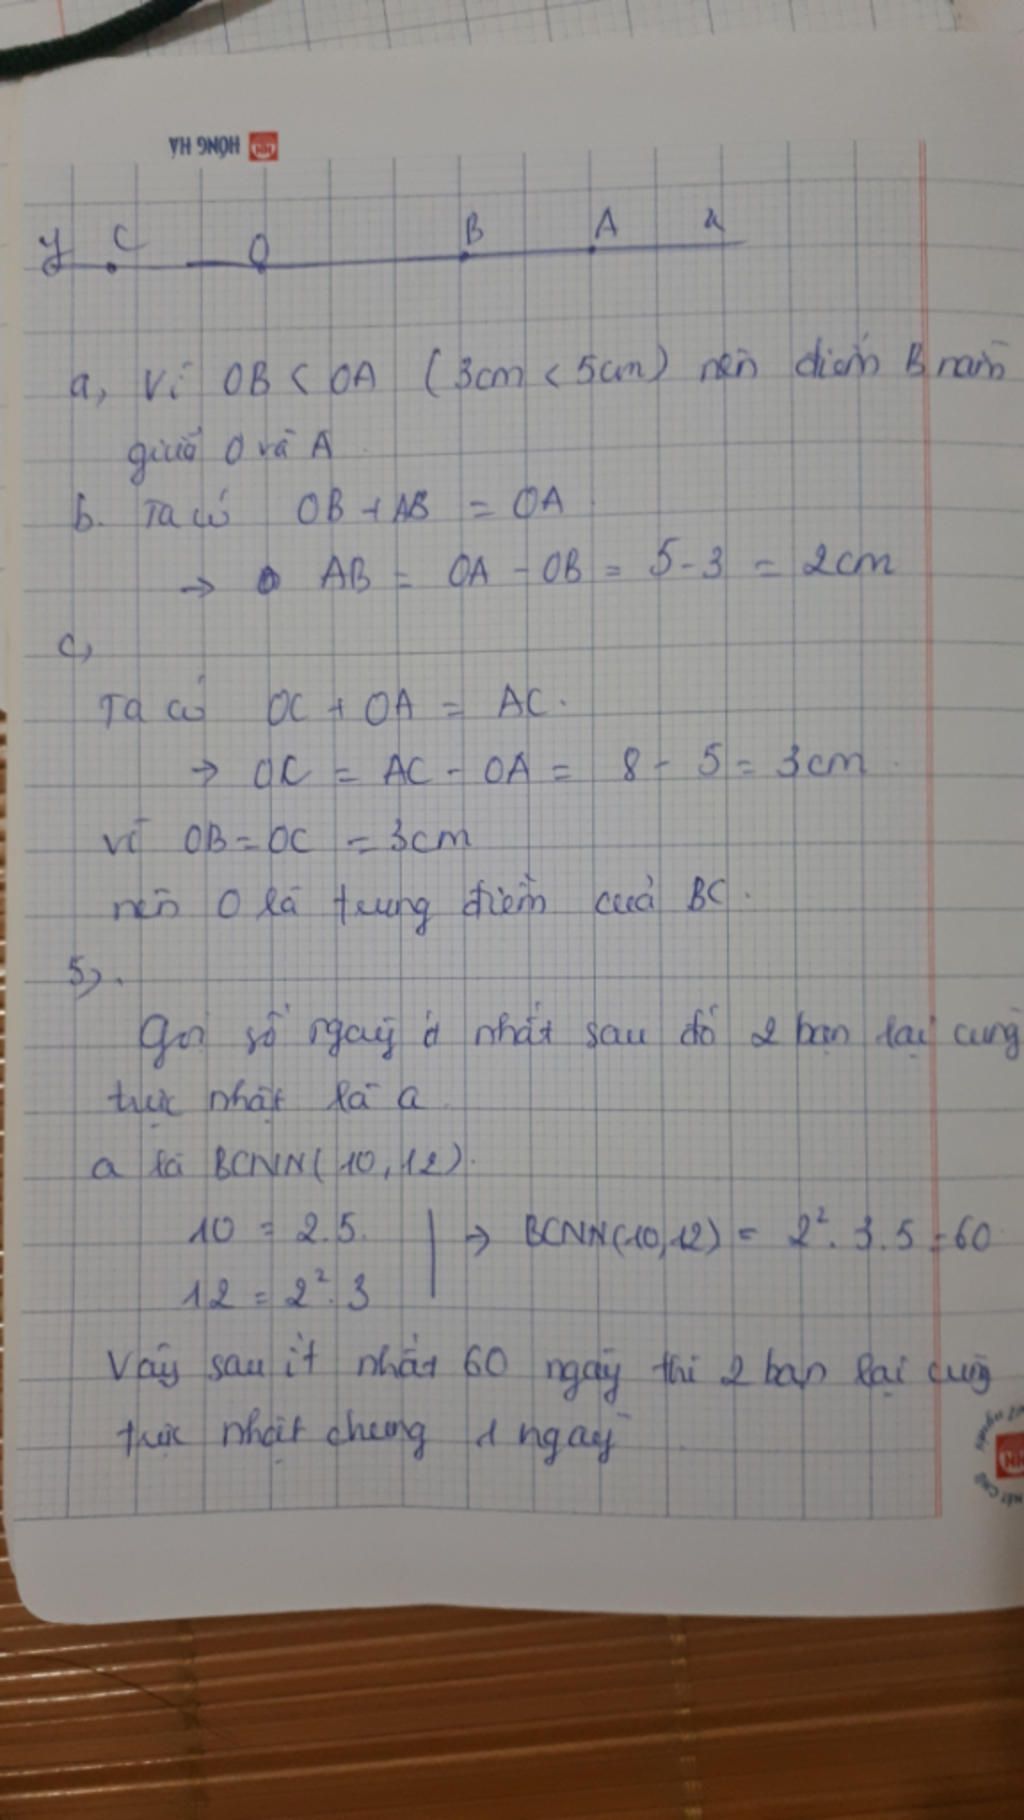 HỒNG HÀ
y C O B A x
a, Vì OB < OA (3cm < 5cm) nên điểm B nằm
giữa O và A.
b. Ta có OB + AB = OA
→ AB = OA - OB = 5 - 3 = 2cm
c,
Ta có OC + OA = AC.
→ OC = AC - OA = 8 - 5 = 3cm
Vì OB = OC = 3cm
nên O là trung điểm của BC.
5).
Gọi số ngày ít nhất sau đó 2 bạn lại cùng
trực nhật là a.
a là BCNN(10,12).
10 = 2.5. | → BCNN(10,12) = 2². 3. 5 = 60
12 = 2². 3
Vậy sau ít nhất 60 ngày thì 2 bạn lại cùng
trực nhật chung 1 ngày